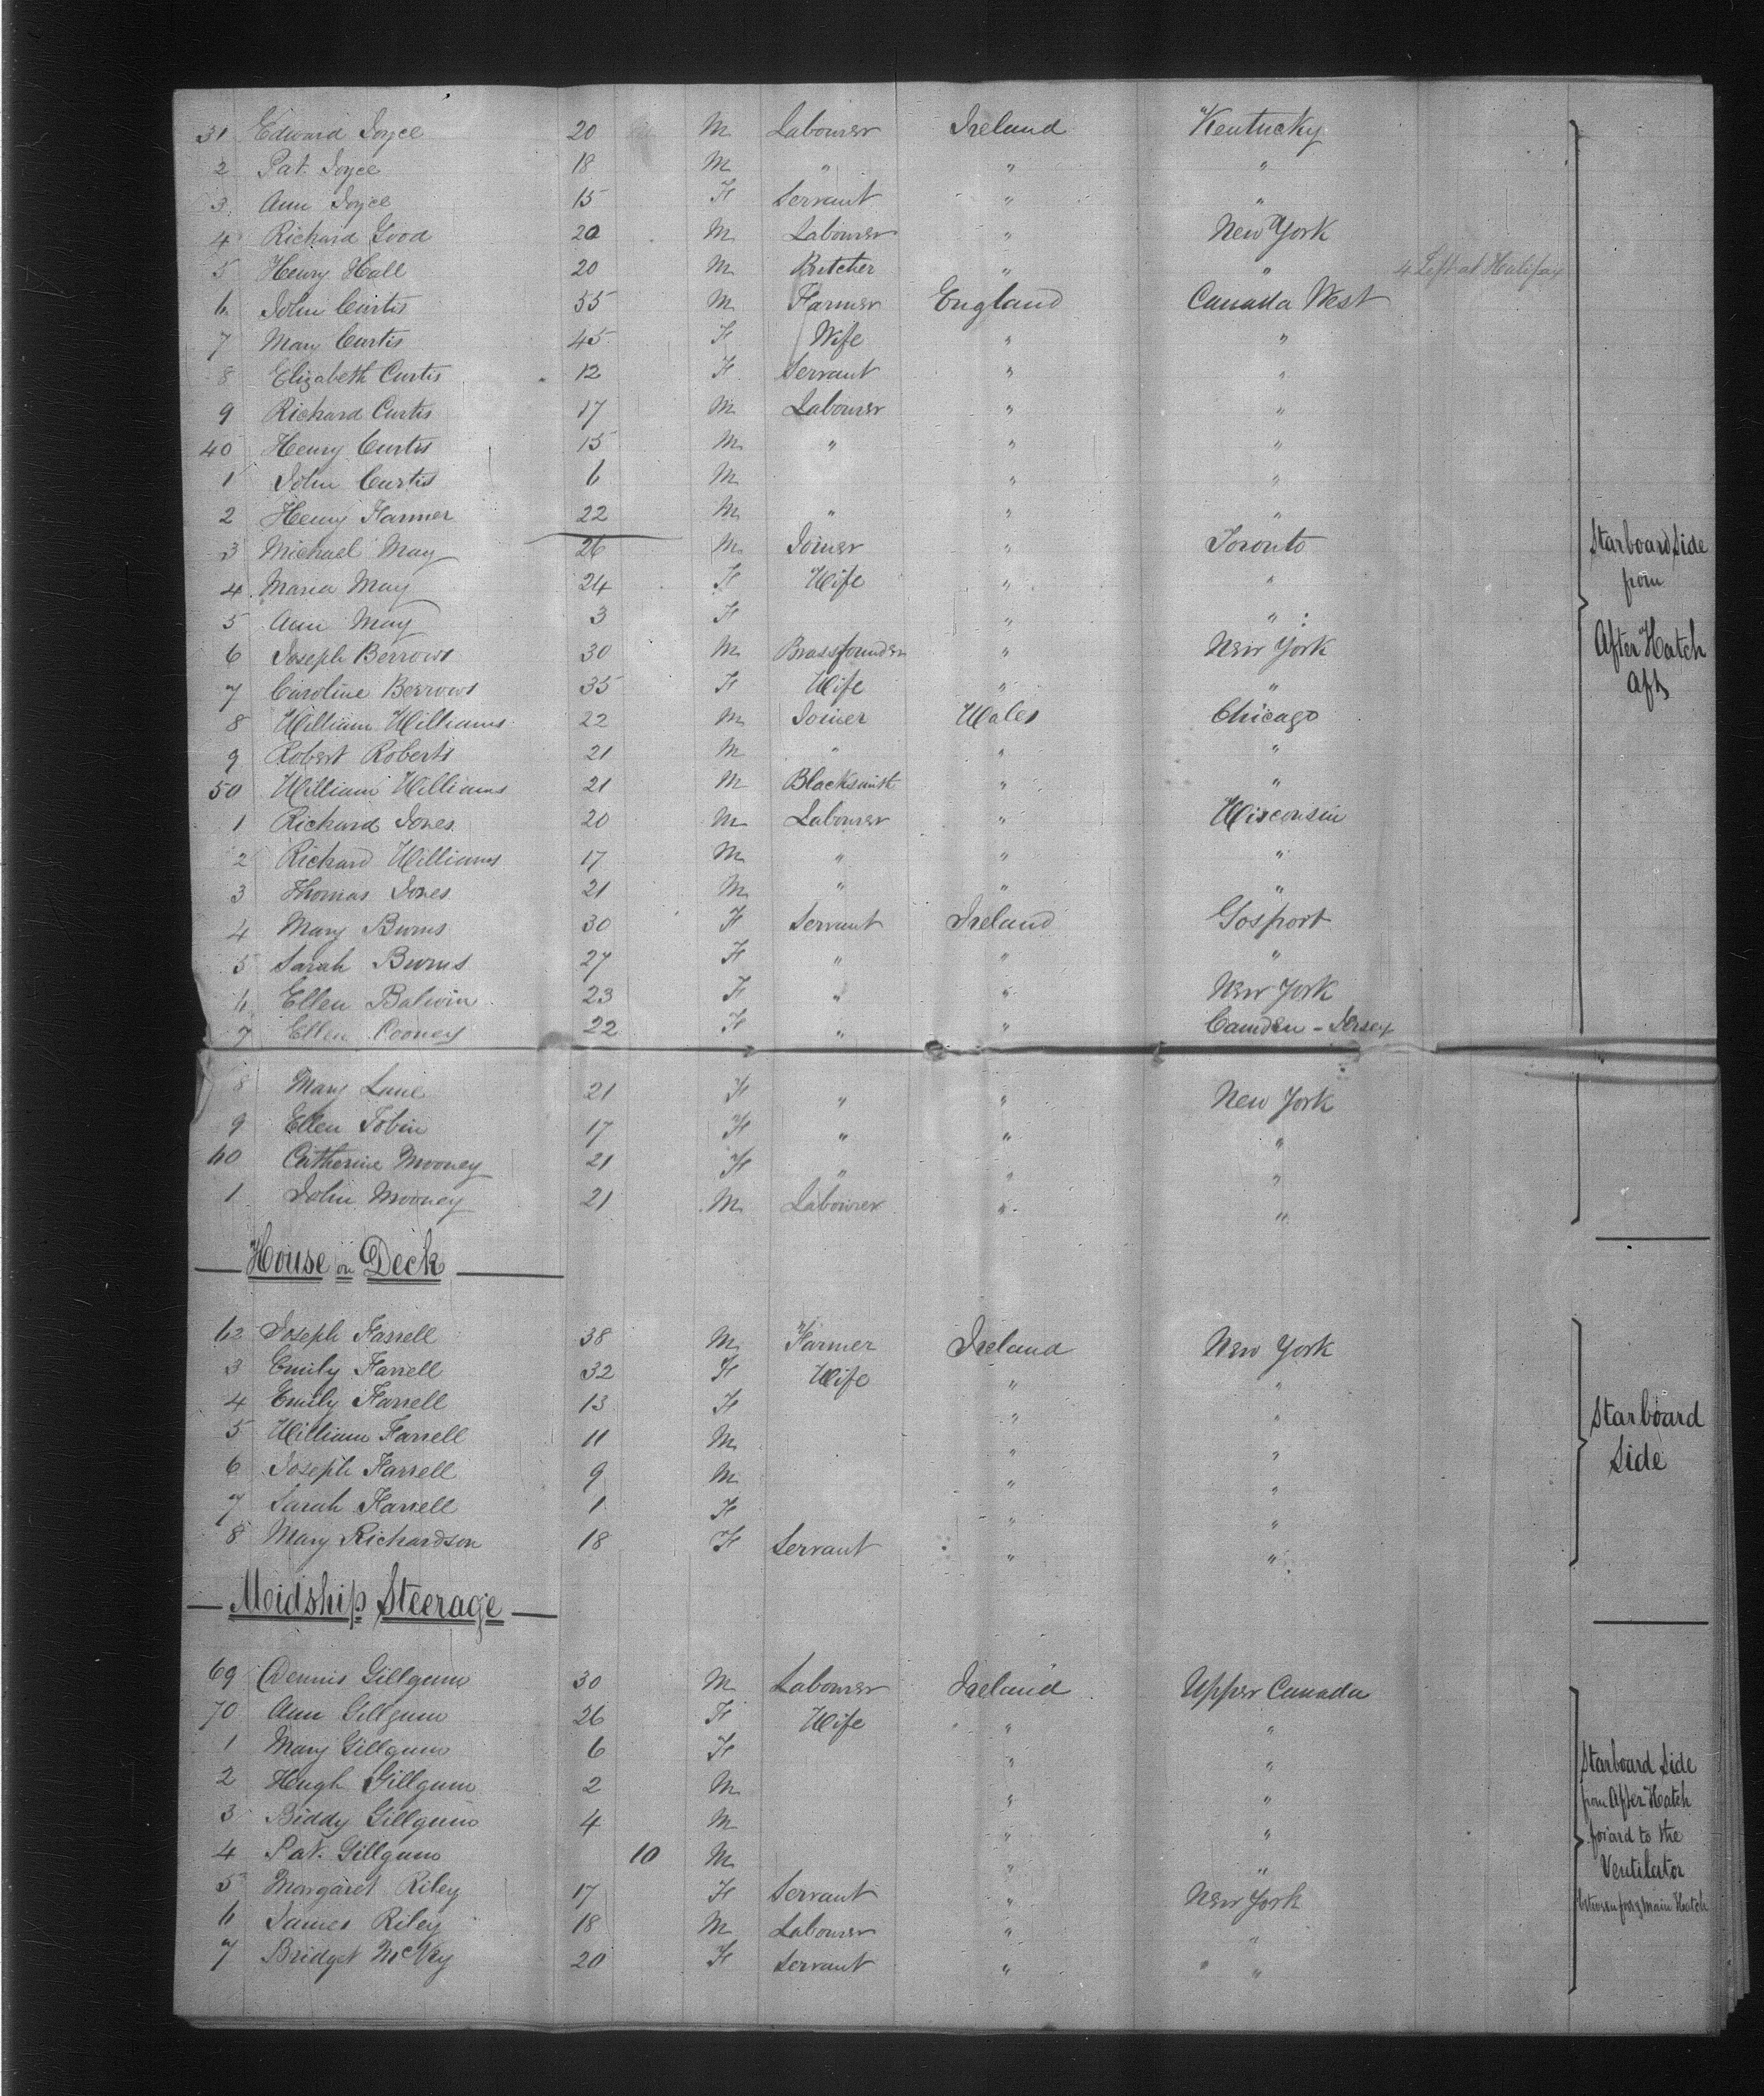 31 Edward Joyce 20 M Labourer Ireland Kentucky
2 Pat. Joyce 18 M " " "
3 Ann Joyce 15 F Servant " "
4 Richard Good 20 M Labourer " New York
5 Henry Hall 20 M Butcher " " 4 Left at Halifax
6 John Curtis 55 M Farmer England Canada West
7 Mary Curtis 45 F Wife " "
8 Elizabeth Curtis 12 F Servant " "
9 Richard Curtis 17 M Labourer " "
40 Henry Curtis 15 M " " "
1 John Curtis 6 M " "
2 Henry Farmer 22 M " " "
3 Michael May 26 M Joiner " Toronto
4 Maria May 24 F Wife " "
5 Ann May 3 F " "
6 Joseph Berrows 30 M Brassfounder " New York
7 Caroline Berrows 35 F Wife " "
8 William Williams 22 M Joiner Wales Chicago
9 Robert Roberts 21 M " " "
50 William Williams 21 M Blacksmith " "
1 Richard Jones 20 M Labourer " Wisconsin
2 Richard Williams 17 M " " "
3 Thomas Jones 21 M " " "
4 Mary Burns 30 F Servant Ireland Gosport
5 Sarah Burns 27 F " " "
6 Ellen Balwin 23 F " " New York
7 Ellen Cooney 22 F " " Camden - Jersey
8 Mary Lane 21 F " " New York
9 Ellen Tobin 17 F " " "
60 Catherine Mooney 21 F " " "
1 John Mooney 21 M Labourer " "
Starboard Side
from
After Hatch
Aft
House on Deck
62 Joseph Farrell 38 M Farmer Ireland New York
3 Emily Farrell 32 F Wife " "
4 Emily Farrell 13 F " "
5 William Farrell 11 M " "
6 Joseph Farrell 9 M " "
7 Sarah Farrell 1 F " "
8 Mary Richardson 18 F Servant " "
Starboard
Side
Meidship Steerage
69 Dennis Gillgum 30 M Labourer Ireland Upper Canada
70 Ann Gillgum 26 F Wife " "
1 Mary Gillgum 6 F " "
2 Hugh Gillgum 2 M " "
3 Biddy Gillgum 4 M " "
4 Pat. Gillgum 10 M " "
5 Margaret Riley 17 F Servant " New York
6 James Riley 18 M Labourer " "
7 Bridget McVey 20 F Servant " "
Starboard Side
from After Hatch
for'ard to the
Ventilator
between fore & main Hatch